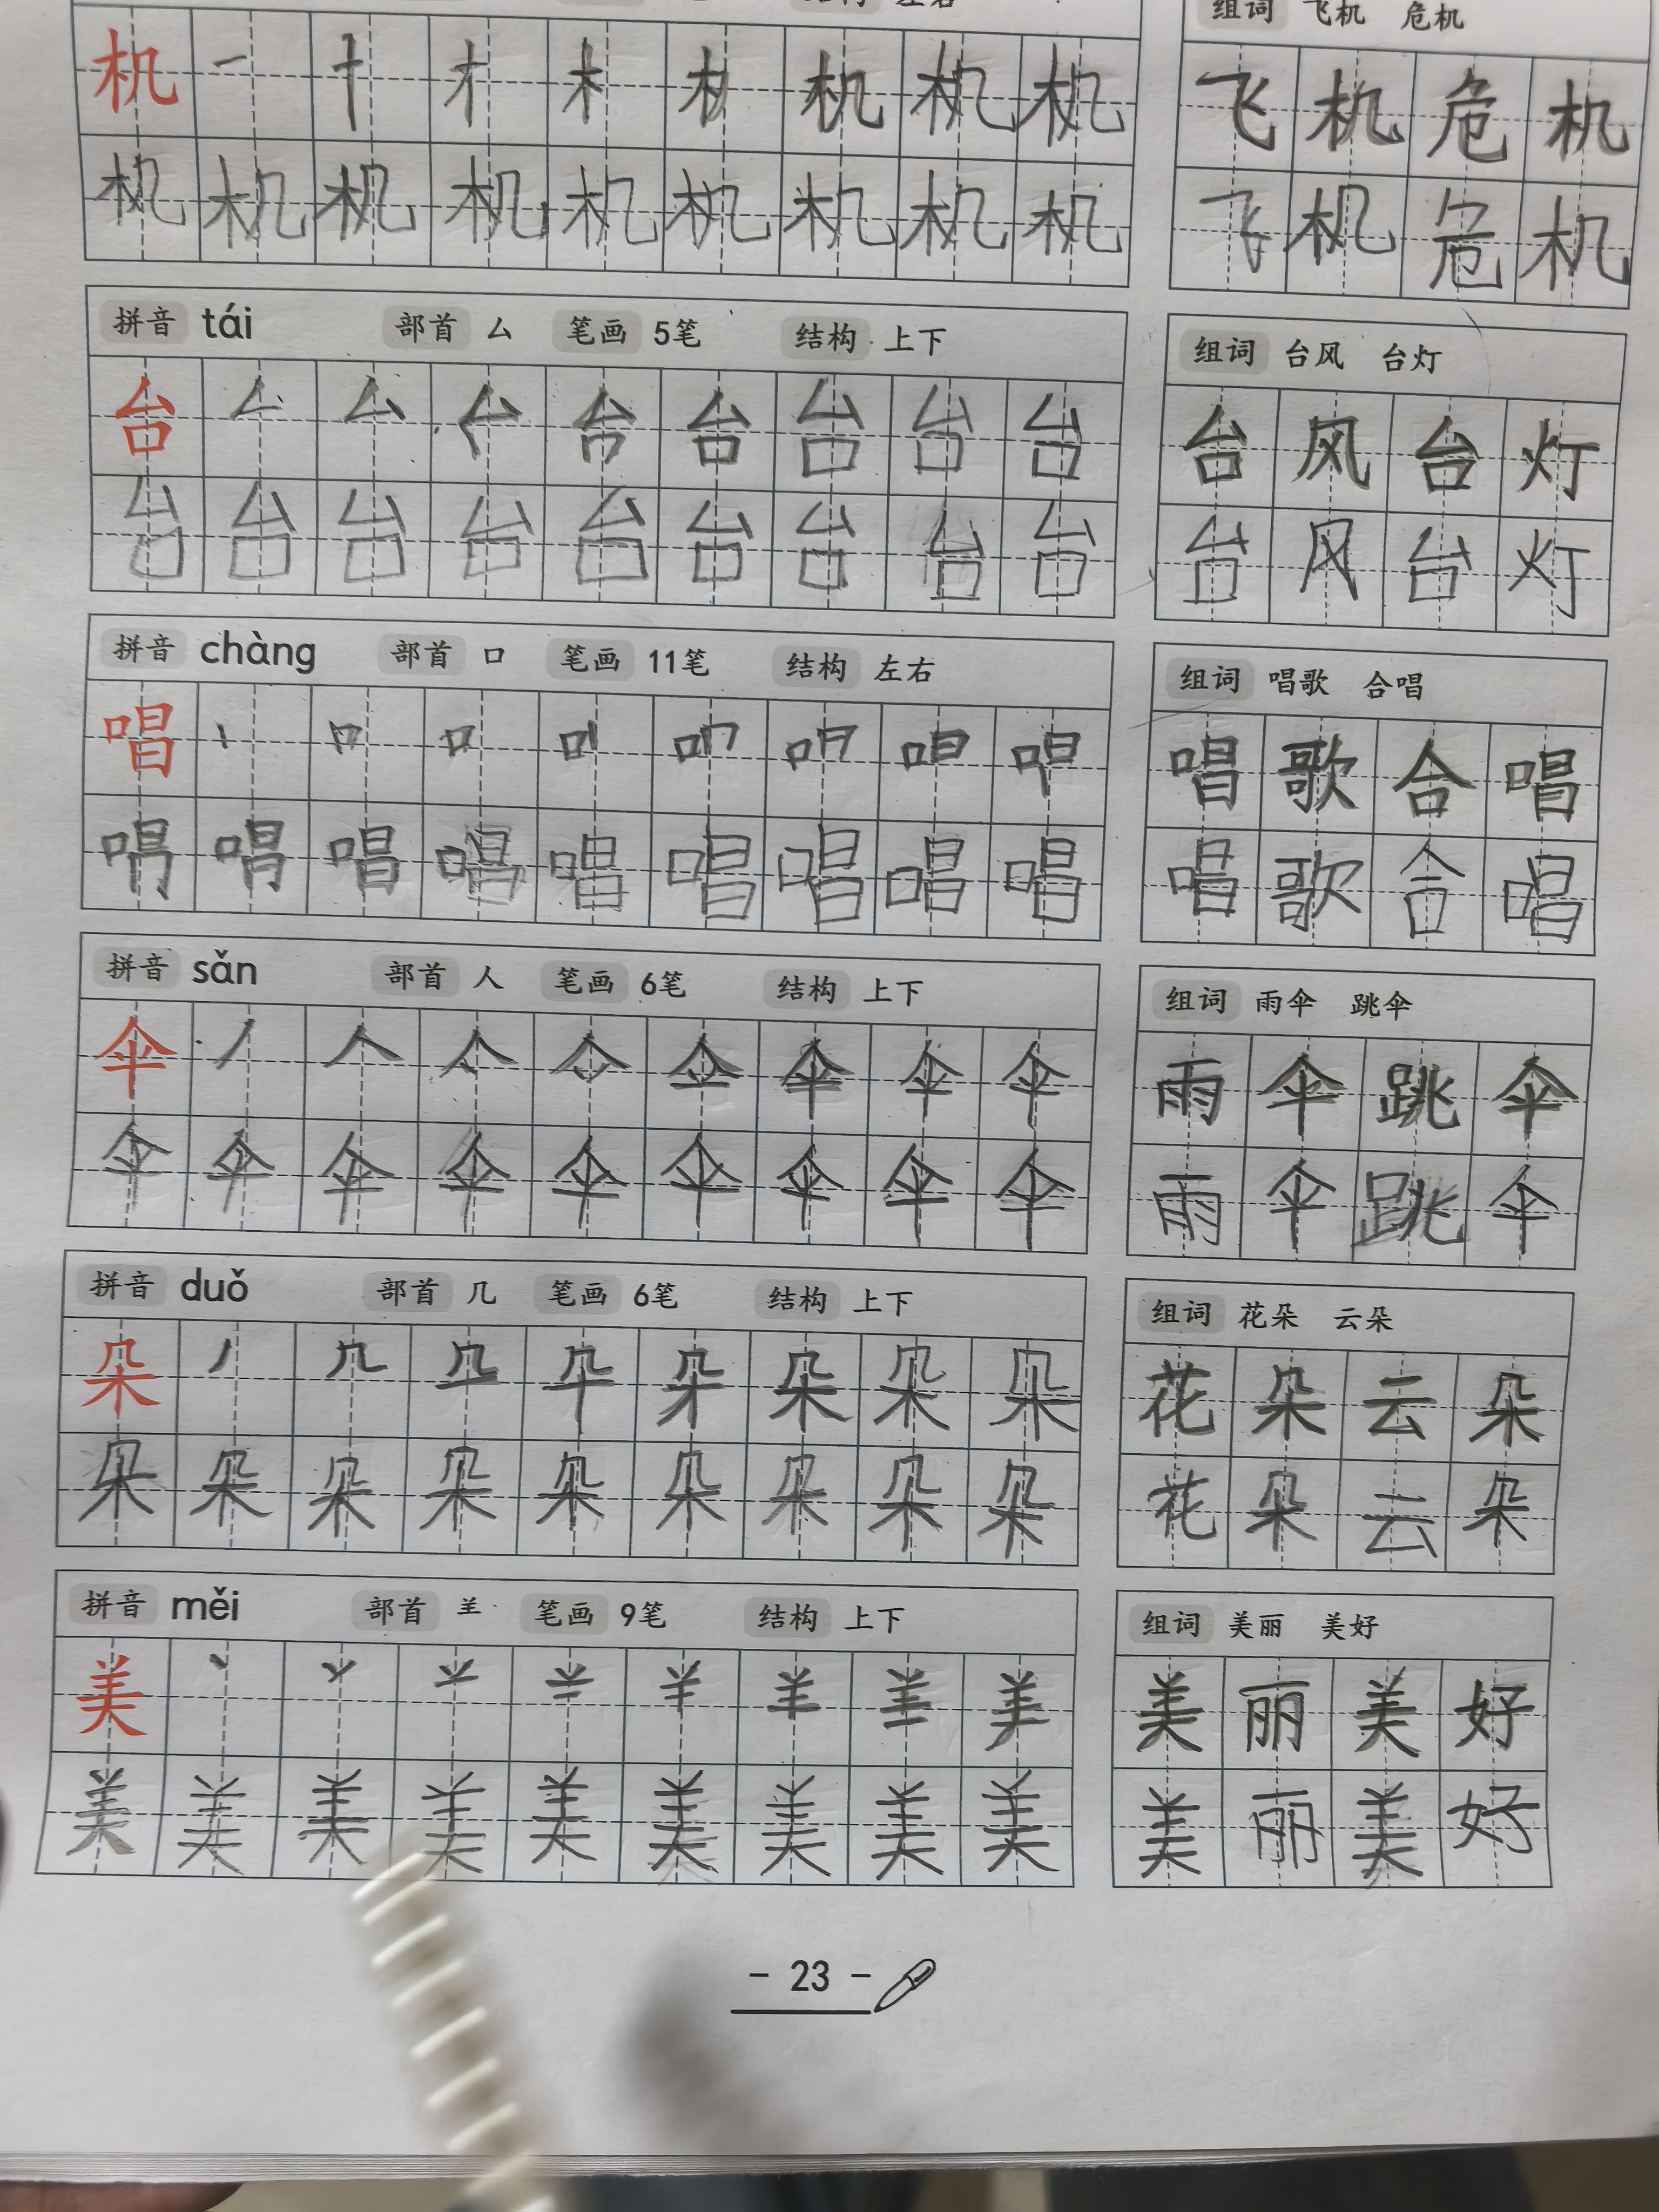 结构 左右
组词 飞机 危机
机 一 十 才 木 机 机 机 机
飞 机 危 机
机 机 机 机 机 机 机 机 机
飞 机 危 机
拼音 tái 部首 厶 笔画 5笔 结构 上下
组词 台风 台灯
台 厶 台 台 台 台 台
台 风 台 灯
台 台 台 台 台 台 台 台 台
台 风 台 灯
拼音 chàng 部首 口 笔画 11笔 结构 左右
组词 唱歌 合唱
唱 丨 口 口
唱 歌 合 唱
唱 唱 唱 唱 唱 唱 唱
唱 歌 合 唱
拼音 sǎn 部首 人 笔画 6笔 结构 上下
组词 雨伞 跳伞
伞 丿 人 伞 伞 伞
雨 伞 跳 伞
伞 伞 伞 伞 伞 伞 伞 伞 伞
雨 伞 跳 伞
拼音 duǒ 部首 几 笔画 6笔 结构 上下
组词 花朵 云朵
朵 丿 几 朵 朵 朵
花 朵 云 朵
朵 朵 朵 朵 朵 朵 朵 朵 朵
花 朵 云 朵
拼音 měi 部首 𦍌 笔画 9笔 结构 上下
组词 美丽 美好
美 丶
美 丽 美 好
美 美 美 美 美 美 美 美 美
美 丽 美 好
- 23 -